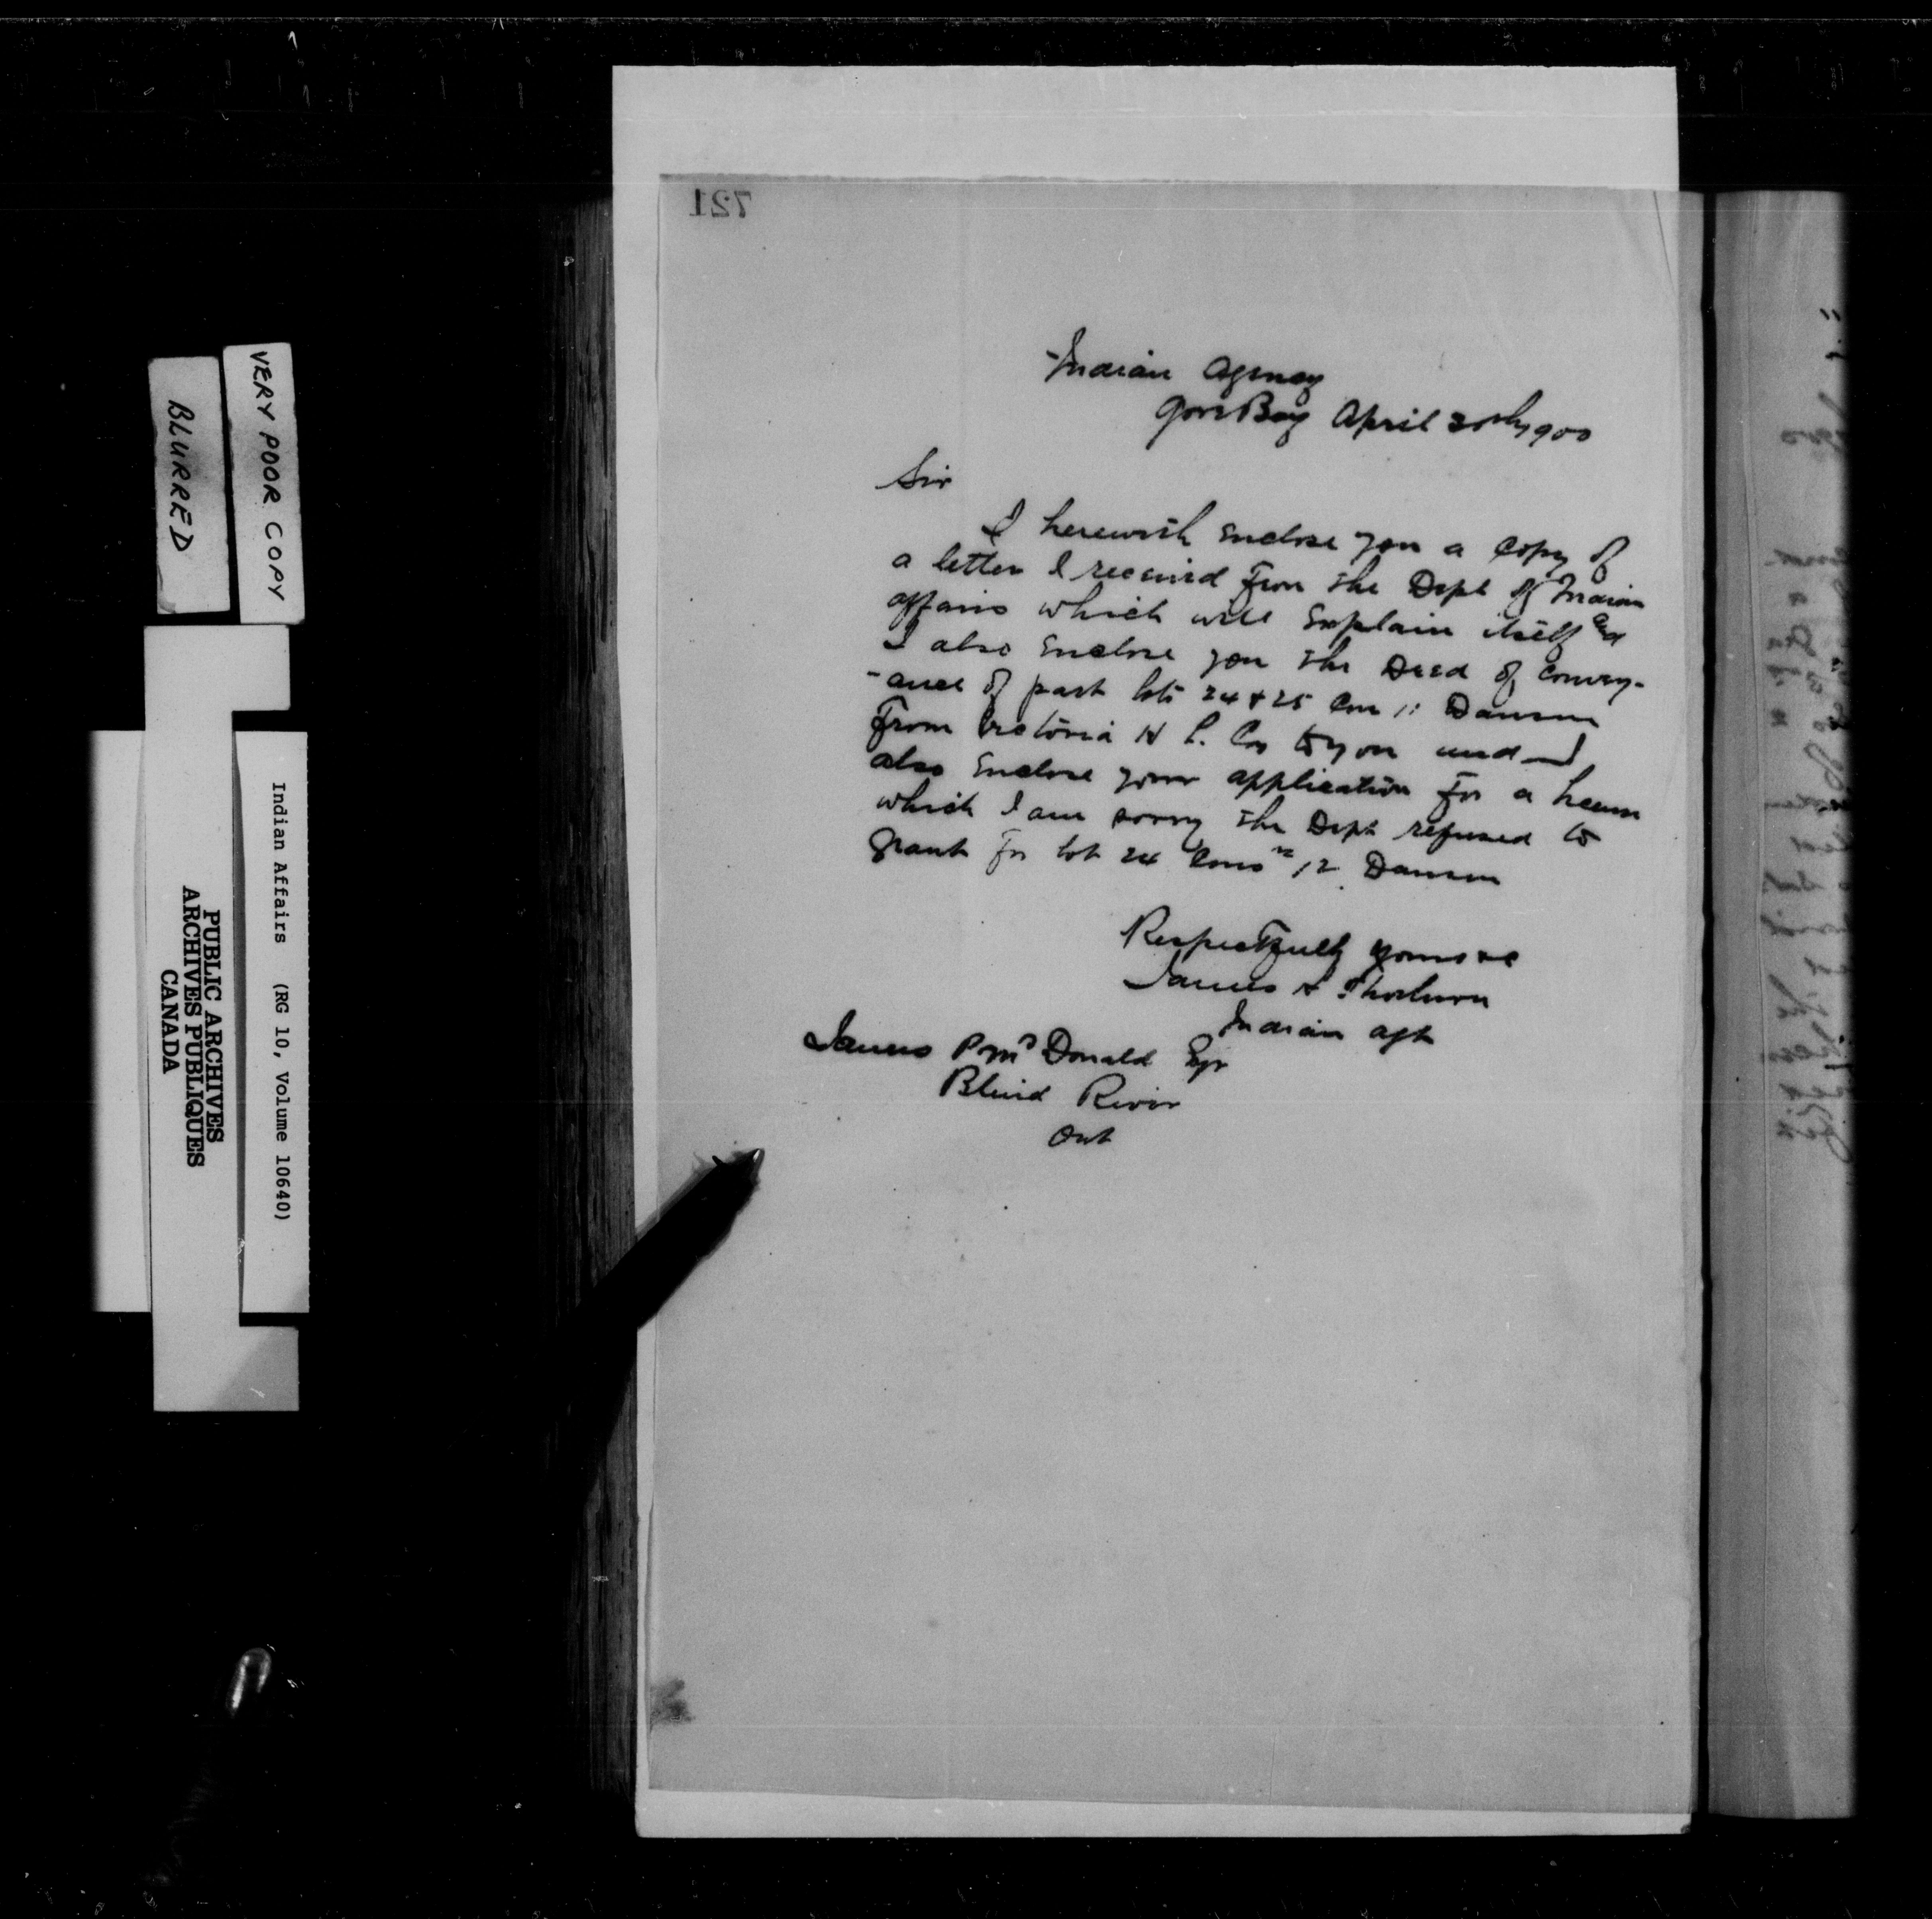 721
Indian Agency
Gore Bay April 30th 1900
Sir
I herewith Enclose you a Copy of
a letter I received From the Dept of Indian
affairs which will Explain itself and
I also Enclose you the Deed of Convey-
-ance of part lots 24 & 25 Con 11 Dawson
From Victoria H L. Co to you and I
also Enclose your application For a license
which I am sorry the Dept refused to
Grant For lot 24 Conn 12 Dawson
Respectfully yours
James H Thorburn
Indian agt
James P McDonald Esqr
Blind River
Ont
VERY POOR COPY
BLURRED
Indian Affairs (RG 10, Volume 10640)
PUBLIC ARCHIVES
ARCHIVES PUBLIQUES
CANADA